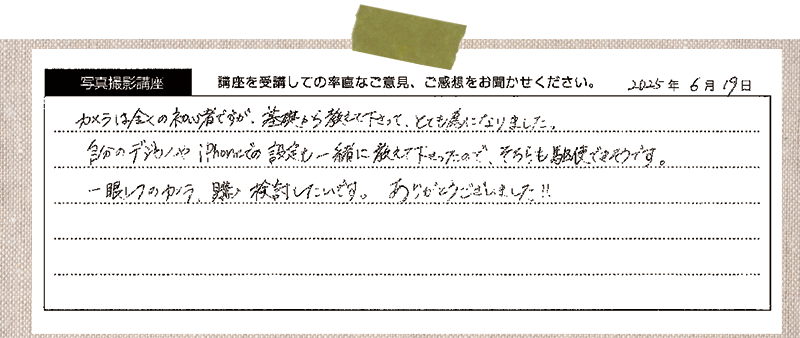 写真撮影講座 講座を受講しての率直なご意見、ご感想をお聞かせください。 2025年 6月 19日
カメラは全くの初心者ですが、基礎から教えて下さって、とても為になりました。
自分のデジカメや iPhoneでの設定も一緒に教えて下さったので、そちらも駆使できそうです。
一眼レフのカメラ、購入検討したいです。 ありがとうございました!!